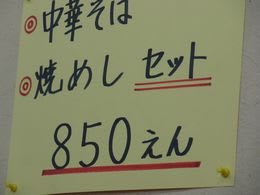 ◎中華そば
◎焼めしセット
850えん